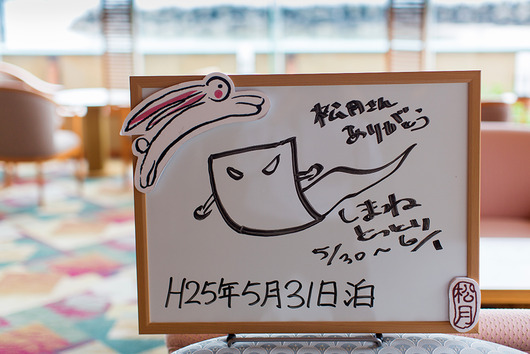 松月さん
ありがとう
しまね
とっとり
5/30〜6/1
H25年5月31日泊
松月